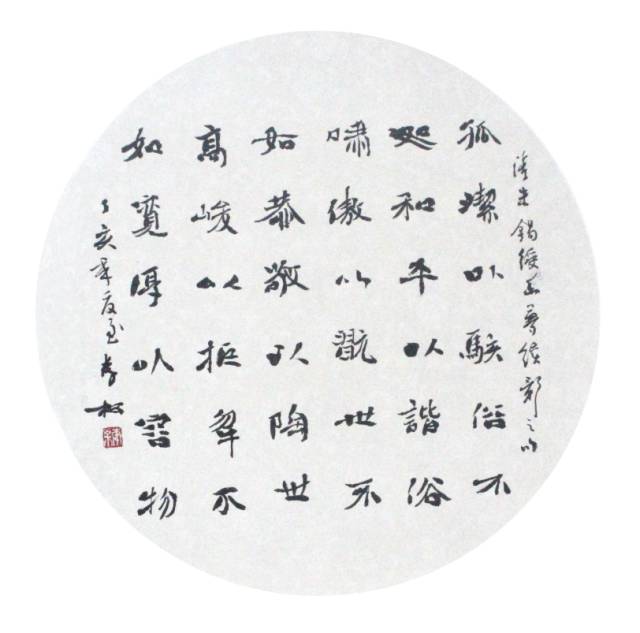 清朱錫綬幽夢續影之句
孤潔以駭俗不
処和平以諧俗
嘯傲以翫世不
如恭敬以陶世
高峻以拒不
如寬厚以容物
丁亥年夏至松